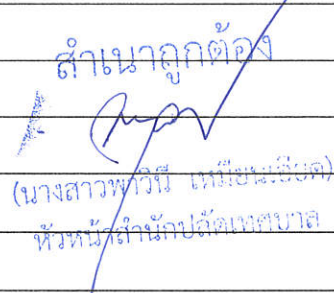 สำเนาถูกต้อง
(นางสาวพาวินี เหมือนเอียด)
หัวหน้าสำนักปลัดเทศบาล